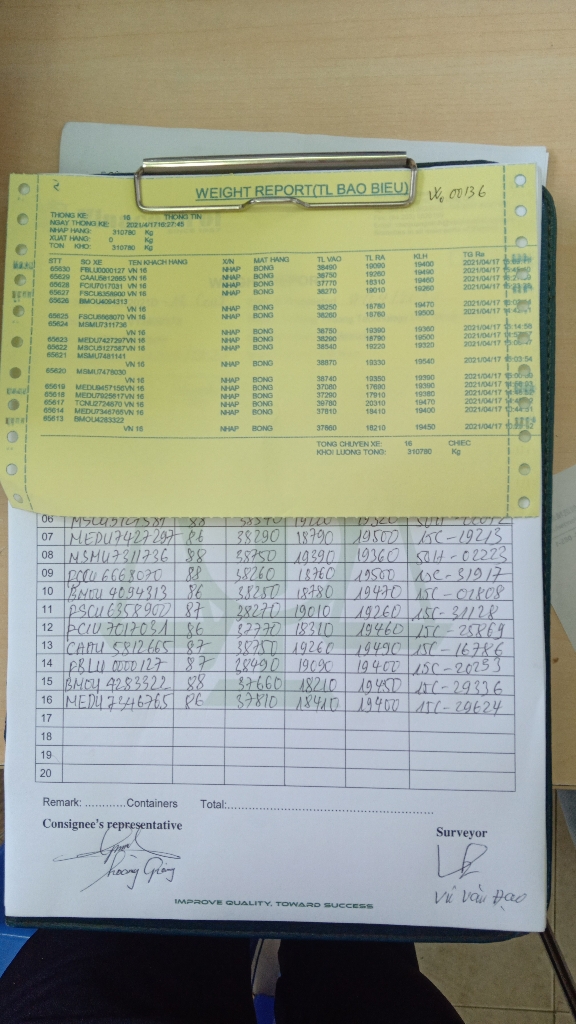 WEIGHT REPORT(TL BAO BIEU)
00136
THONG KE: 16 THONG TIN
NGAY THONG KE: 2021/4/1716:27:45
NHAP HANG: 310780 Kg
XUAT HANG: 0 Kg
TON KHO: 310780 Kg
STT SO XE TEN KHACH HANG X/N MAT HANG TL VAO TL RA KLH TG Ra
65630 FBLU0000127 VN 16 NHAP BONG 38490 19090 19400 2021/04/17
65629 CAAU5812665 VN 16 NHAP BONG 38750 19260 19490 2021/04/17
65628 FCIU7017031 VN 16 NHAP BONG 37770 18310 19460 2021/04/17
65627 FSCU6358900 VN 16 NHAP BONG 38270 19010 19260 2021/04/17
65626 BMOU4094313
VN 16 NHAP BONG 38250 18780 19470 2021/04/17
65625 FSCU6668070 VN 16 NHAP BONG 38260 18760 19500 2021/04/17
65624 MSMU7311736
VN 16 NHAP BONG 38750 19390 19360 2021/04/17
65623 MEDU7427297 VN 16 NHAP BONG 38290 18790 19500 2021/04/17
65622 VN 16 NHAP BONG 38540 19220 19320 2021/04/17
65621 MSMU7481141
VN 16 NHAP BONG 38870 19330 19540 2021/04/17
65620 MSMU7476030
VN 16 NHAP BONG 38740 19350 19390 2021/04/17
65619 MEDU8457156 VN 16 NHAP BONG 37080 17690 19390 2021/04/17
65618 MEDU7925617 VN 16 NHAP BONG 37290 17910 19380 2021/04/17
65617 TCNU2724670 VN 16 NHAP BONG 39780 20310 19470 2021/04/17
65614 MEDU7346765 VN 16 NHAP BONG 37810 18410 19400 2021/04/17
65613 BMOU4283322
VN 16 NHAP BONG 37660 18210 19450 2021/04/17
TONG CHUYEN XE: 16 CHIEC
KHOI LUONG TONG: 310780 Kg
06 88
07 MEDU7427297 86 38290 18790 19500 15C-19213
08 MSMU7311736 88 38750 19390 19360 50H-02223
09 88 38260 18760 19500 15C-31917
10 BMOU 4094313 86 38250 18780 19470 15C-01808
11 FSCU6358900 87 28270 19010 19260 15C-31128
12 FCIU 7017031 86 37770 18310 19460 15C-25869
13 CAAU 5812665 87 38750 19260 19490 15C-16786
14 FBLU 0000127 87 28490 19090 19400 15C-20253
15 BMOU 4283322 88 37660 18210 19450 15C-29336
16 MEDU 7346765 86 37810 18410 19400 15C-29624
17
18
19
20
Remark: ............Containers Total:......................................................
Consignee's representative Surveyor
Hoàng Giang
Vũ Văn Đạo
IMPROVE QUALITY, TOWARD SUCCESS